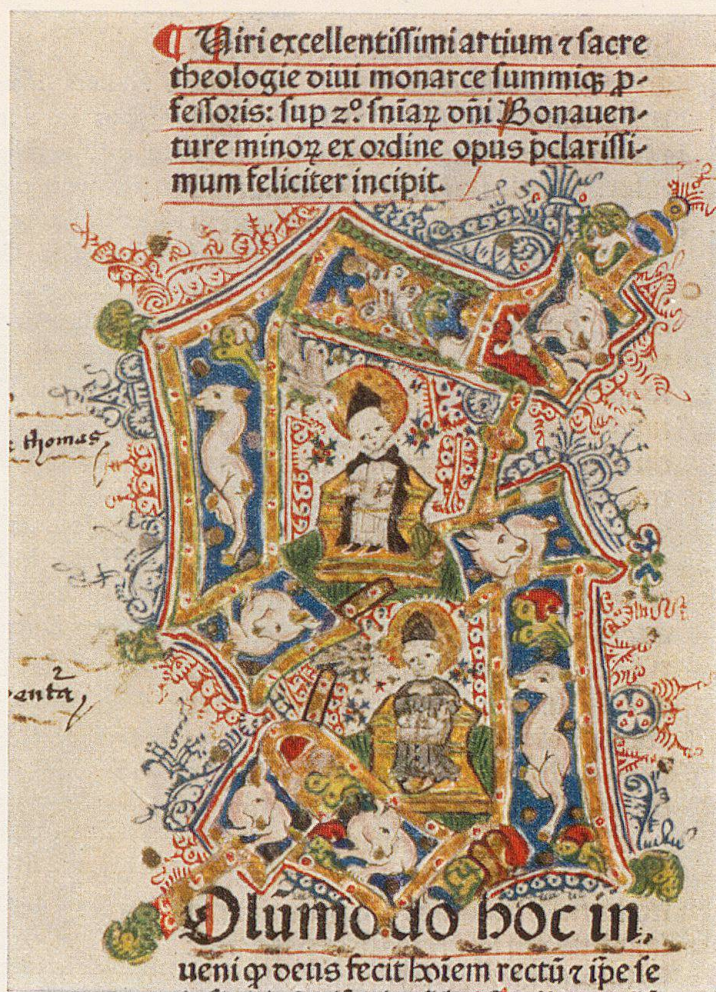 Uiri excellentissimi artium ⁊ sacre
theologie diui monarce summiqꝫ ꝓ-
fessoris: suꝑ 2º. sn̄iaꝝ dn̄i Bonauen-
ture minoꝝ ex ordine opus p̄clarissi-
mum feliciter incipit.
thomas,
olūmodo hoc in,
ueni ꝙ deus fecit hoīem rectū ⁊ ip̄e se